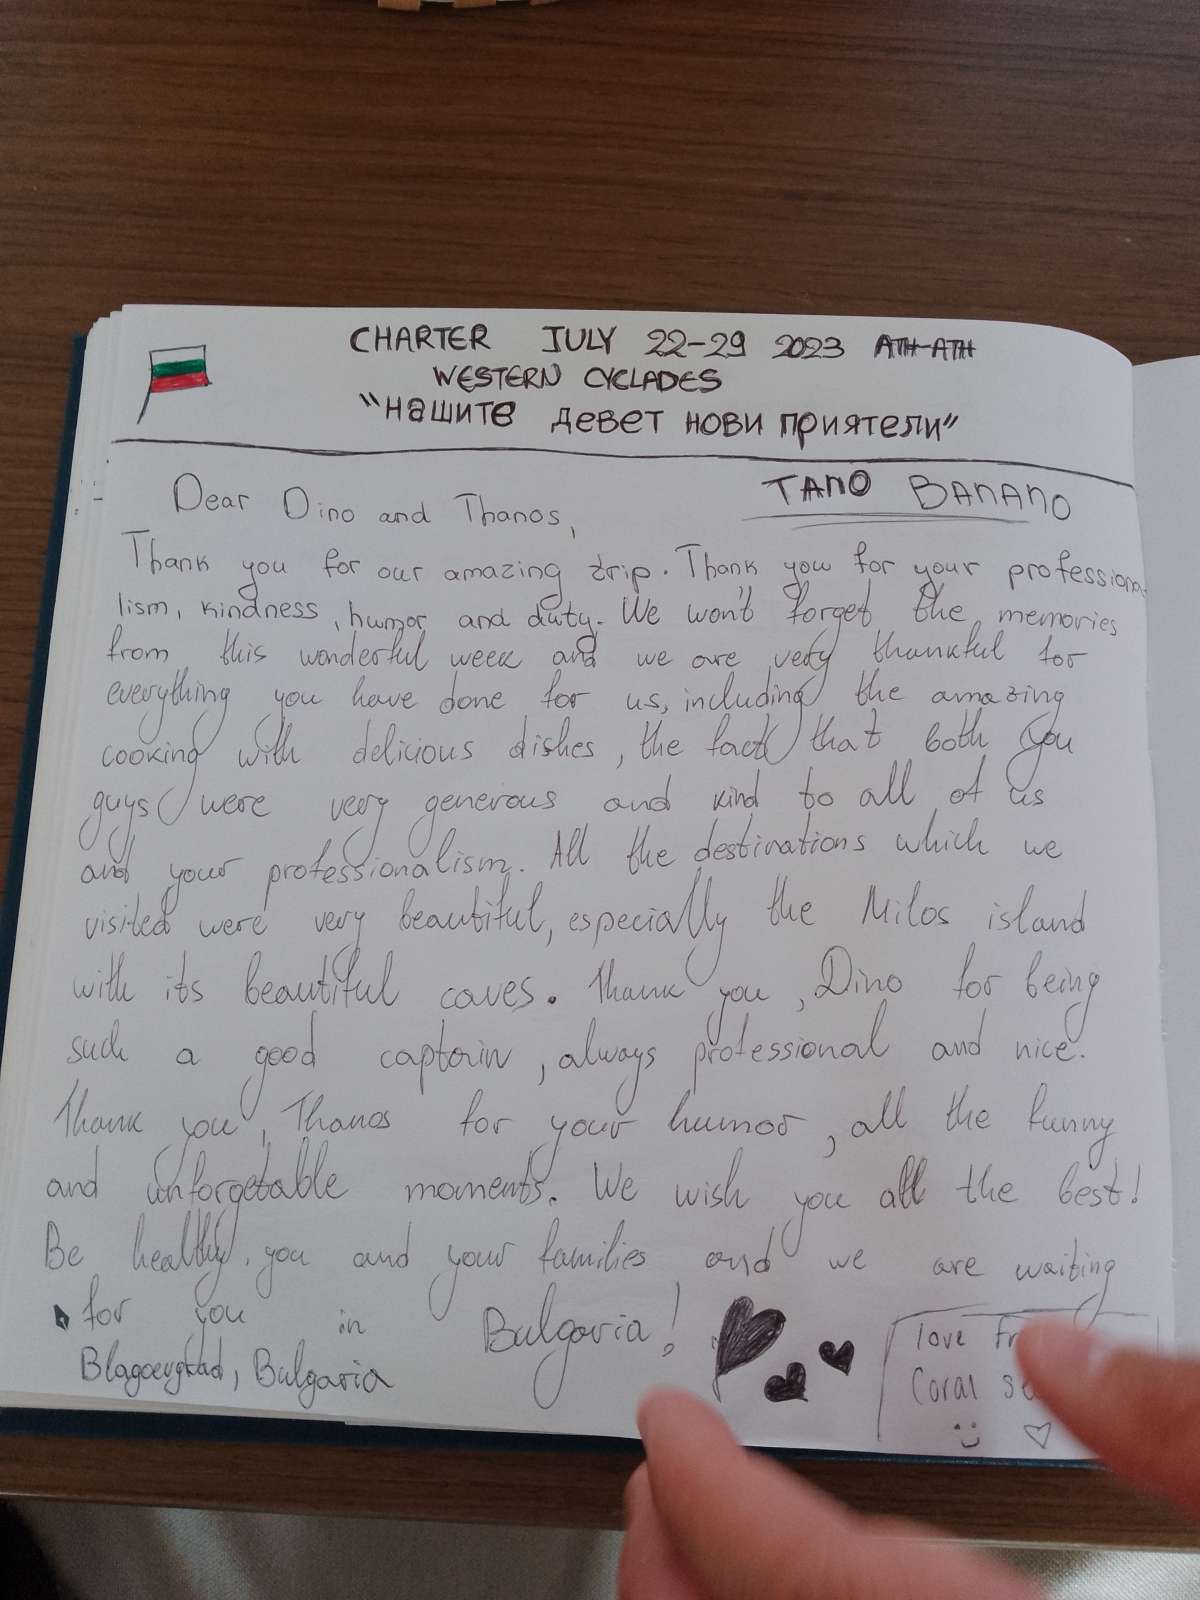 CHARTER JULY 22-29 2023 ATH-ATH
WESTERN CYCLADES
"нашите девет нови приятели"
TANO BANANO
Dear Dino and Thanos,
Thank you for our amazing trip. Thank you for your professiona-
lism, kindness, humor and duty. We won't forget the memories
from this wonderful week and we are very thankful for
everything you have done for us, including the amazing
cooking with delicious dishes, the fact that both you
guys were very generous and kind to all of us
and your professionalism. All the destinations which we
visited were very beautiful, especially the Milos island
with its beautiful caves. Thank you, Dino for being
such a good captain, always professional and nice.
Thank you, Thanos for your humor, all the funny
and unforgetable moments. We wish you all the best!
Be healthy, you and your families and we are waiting
for you in Bulgaria!
Blagoevgrad, Bulgaria
love
Coral